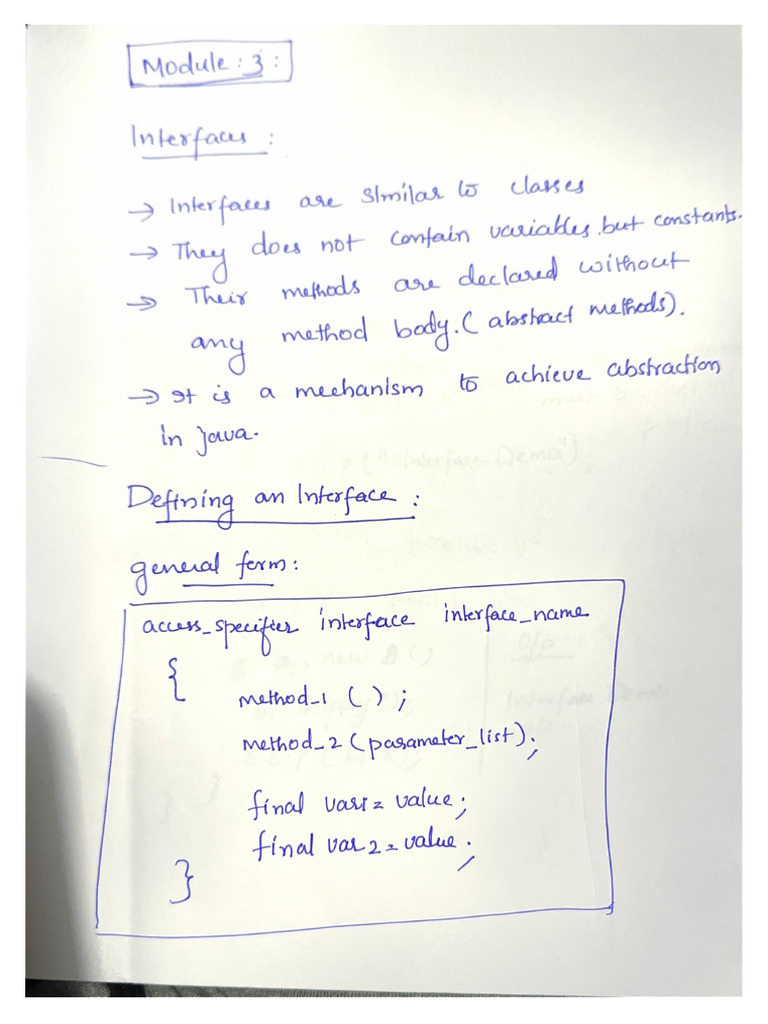 Module : 3 :
Interfaces :
→ Interfaces are similar to classes
→ They does not contain variables. but constants.
→ Their methods are declared without
any method body. (abstract methods).
→ It is a mechanism to achieve abstraction
in java.
Defining an Interface :
general form :
access_specifier interface interface_name
{
method_1 ( ) ;
method_2 (parameter_list) ;
final var1 = value ;
final var 2 = value ;
}